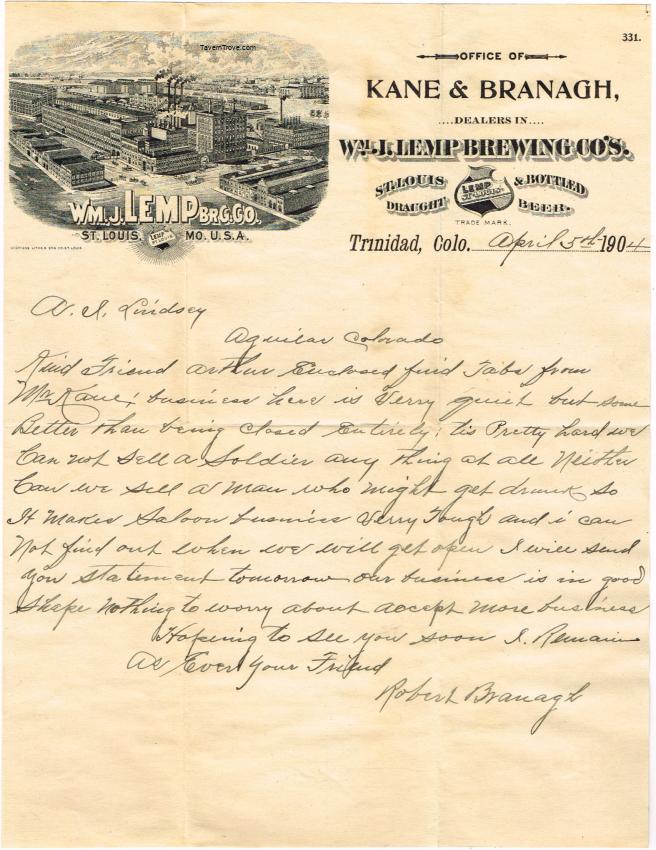 TavernTrove.com
331.
OFFICE OF
KANE & BRANAGH,
....DEALERS IN....
WM. J. LEMP BREWING CO'S.
ST. LOUIS DRAUGHT & BOTTLED BEER.
LEMP
ST. LOUIS
TRADE MARK.
WM. J. LEMP BRG. CO.
ST. LOUIS, MO. U.S.A.
LEMP
ST. LOUIS
Trinidad, Colo. April 5th 1904
A. I. Lindsey
Aguilar Colorado
Kind Friend Arthur Enclosed find Tabs from
Mr Kane; business here is Verry quiet but some
Better than being closed Entirely; tis Pretty hard we
Can not Sell a Soldier any thing at all Neither
Can we sell a man who might get drunk so
It Makes Saloon business Verry Tough and i can
Not find out when we will get open I will send
you statement tomorrow our business is in good
Shape nothing to worry about accept more business
Hopeing to see you soon I. Remain
As Ever Your Friend
Robert Branagh